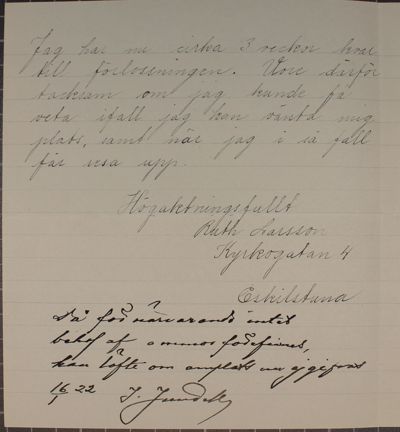 Jag har nu cirka 3 veckor kvar
till förlossningen. Vore därför
tacksam om jag kunde få
veta ifall jag kan vänta mig
plats, samt när jag i så fall
får resa upp.
Högaktningsfullt
Ruth Larsson
Kyrkogatan 4
Eskilstuna
Då för närvarande intet
behof af ammor förefinnes,
kan löfte om plats ej gifvas
16/1 22 I. Jundell